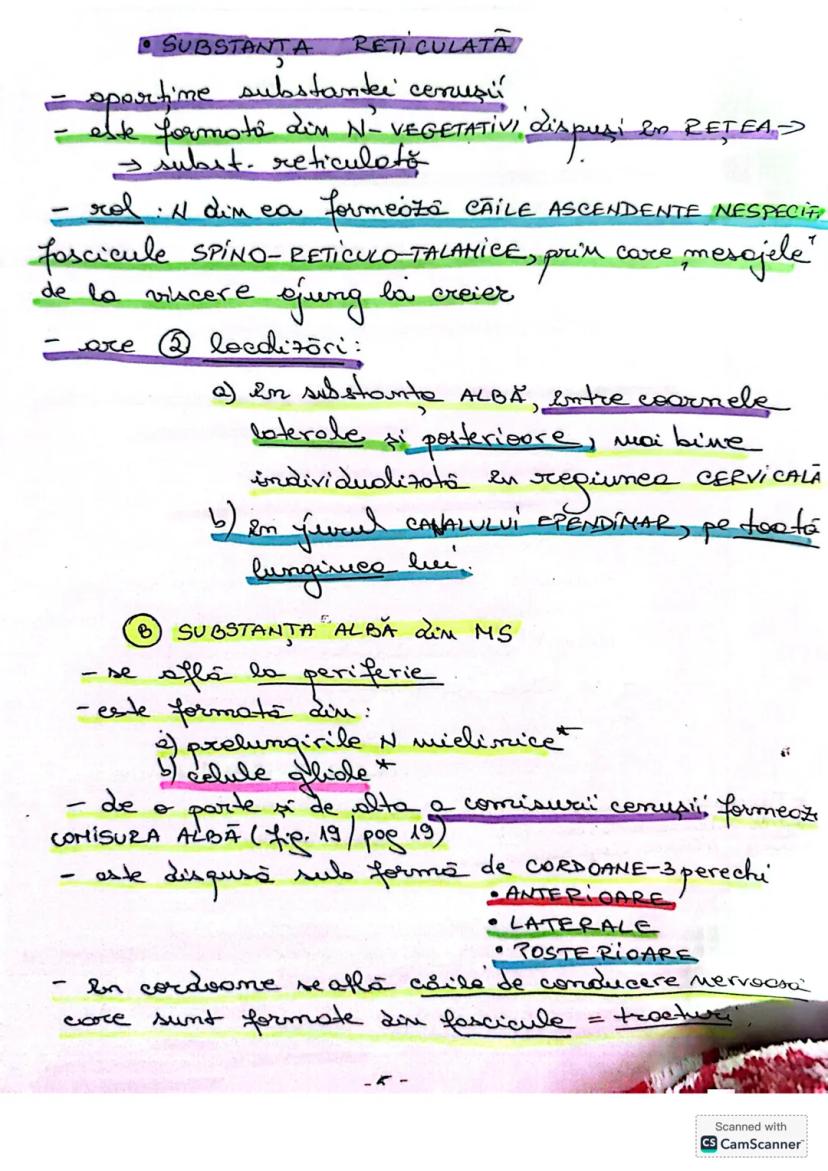 • SUBSTANȚA RETICULATĂ
- aparține substanței cenușii
- este formată din N-VEGETATIVI, dispuși în REȚEA →
→ subst. reticulată
- rol : N din ea formează CĂILE ASCENDENTE NESPECIF.
fascicule SPINO-RETICULO-TALAMICE, prin care mesajele
de la viscere ajung la creier
- are ② localizări:
a) în substanța ALBĂ, între coarnele
laterale și posterioare, mai bine
individualizată în regiunea CERVICALĂ
b) în jurul CANALULUI EPENDIMAR, pe toată
lungimea lui.
Ⓑ SUBSTANȚA ALBĂ din MS
- se află la periferie
- este formată din:
a) prelungirile N mielinice*
b) celule gliale*
- de o parte și de alta a comisurii cenușii formează
COMISURA ALBĂ (fig. 19/pag 19)
- este dispusă sub formă de CORDOANE-3 perechi
• ANTERIOARE
• LATERALE
• POSTERIOARE
- în cordoane se află căile de conducere nervoasă
care sunt formate din fascicule = tracturi.
-5-
Scanned with
CS CamScanner